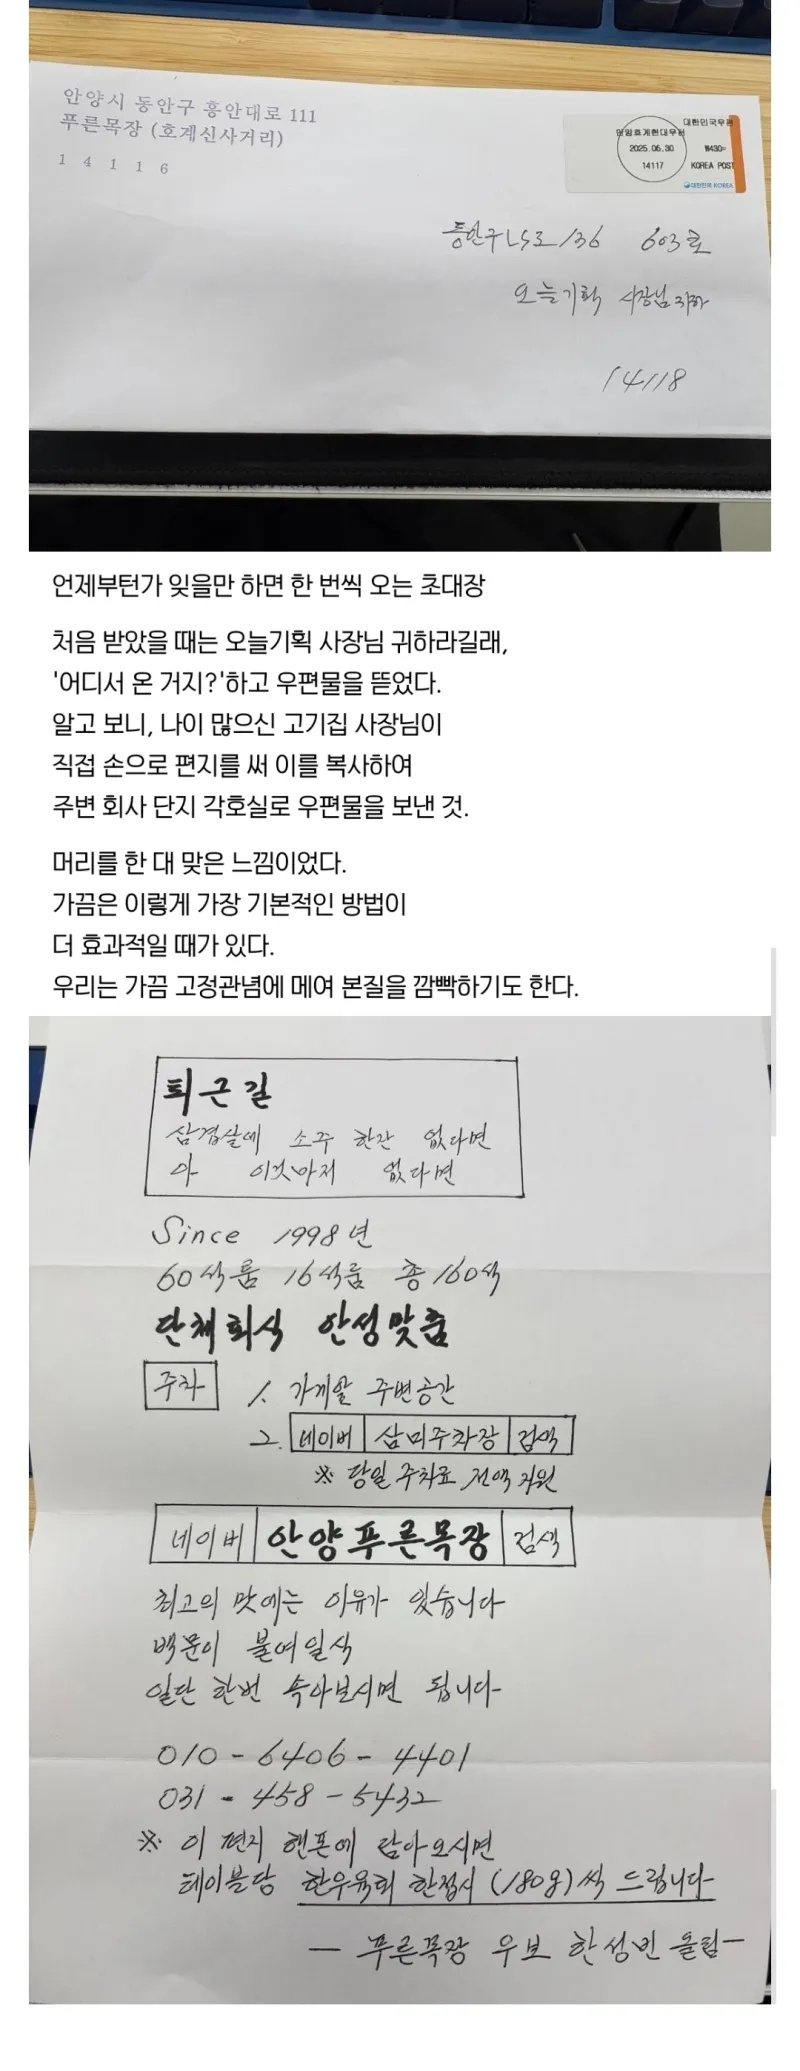 안양시 동안구 흥안대로 111
푸른목장 (호계신사거리)
1 4 1 1 6
대한민국우편
안양호계현대우편
2025.06.30
₩430=
14117
KOREA POST
대한민국 KOREA
동안구 LS로 136 603호
오늘기획 사장님 귀하
14118
언제부턴가 잊을만 하면 한 번씩 오는 초대장
처음 받았을 때는 오늘기획 사장님 귀하라길래,
'어디서 온 거지?'하고 우편물을 뜯었다.
알고 보니, 나이 많으신 고기집 사장님이
직접 손으로 편지를 써 이를 복사하여
주변 회사 단지 각호실로 우편물을 보낸 것.
머리를 한 대 맞은 느낌이었다.
가끔은 이렇게 가장 기본적인 방법이
더 효과적일 때가 있다.
우리는 가끔 고정관념에 메여 본질을 깜빡하기도 한다.
퇴근길
삼겹살에 소주 한잔 없다면
아 이것마저 없다면
Since 1998년
60석룸 16석룸 총 160석
단체회식 안성맞춤
주차 1. 가게앞 주변공간
2. 네이버 삼미주차장 검색
※ 당일 주차료 전액 지원
네이버 안양푸른목장 검색
최고의 맛에는 이유가 있습니다
백문이 불여일식
일단 한번 속아보시면 됩니다
010-6406-4401
031-458-5432
※ 이 편지 핸폰에 담아오시면
테이블당 한우육회 한접시 (180g)씩 드립니다
- 푸른목장 우보 한성빈 올림 -